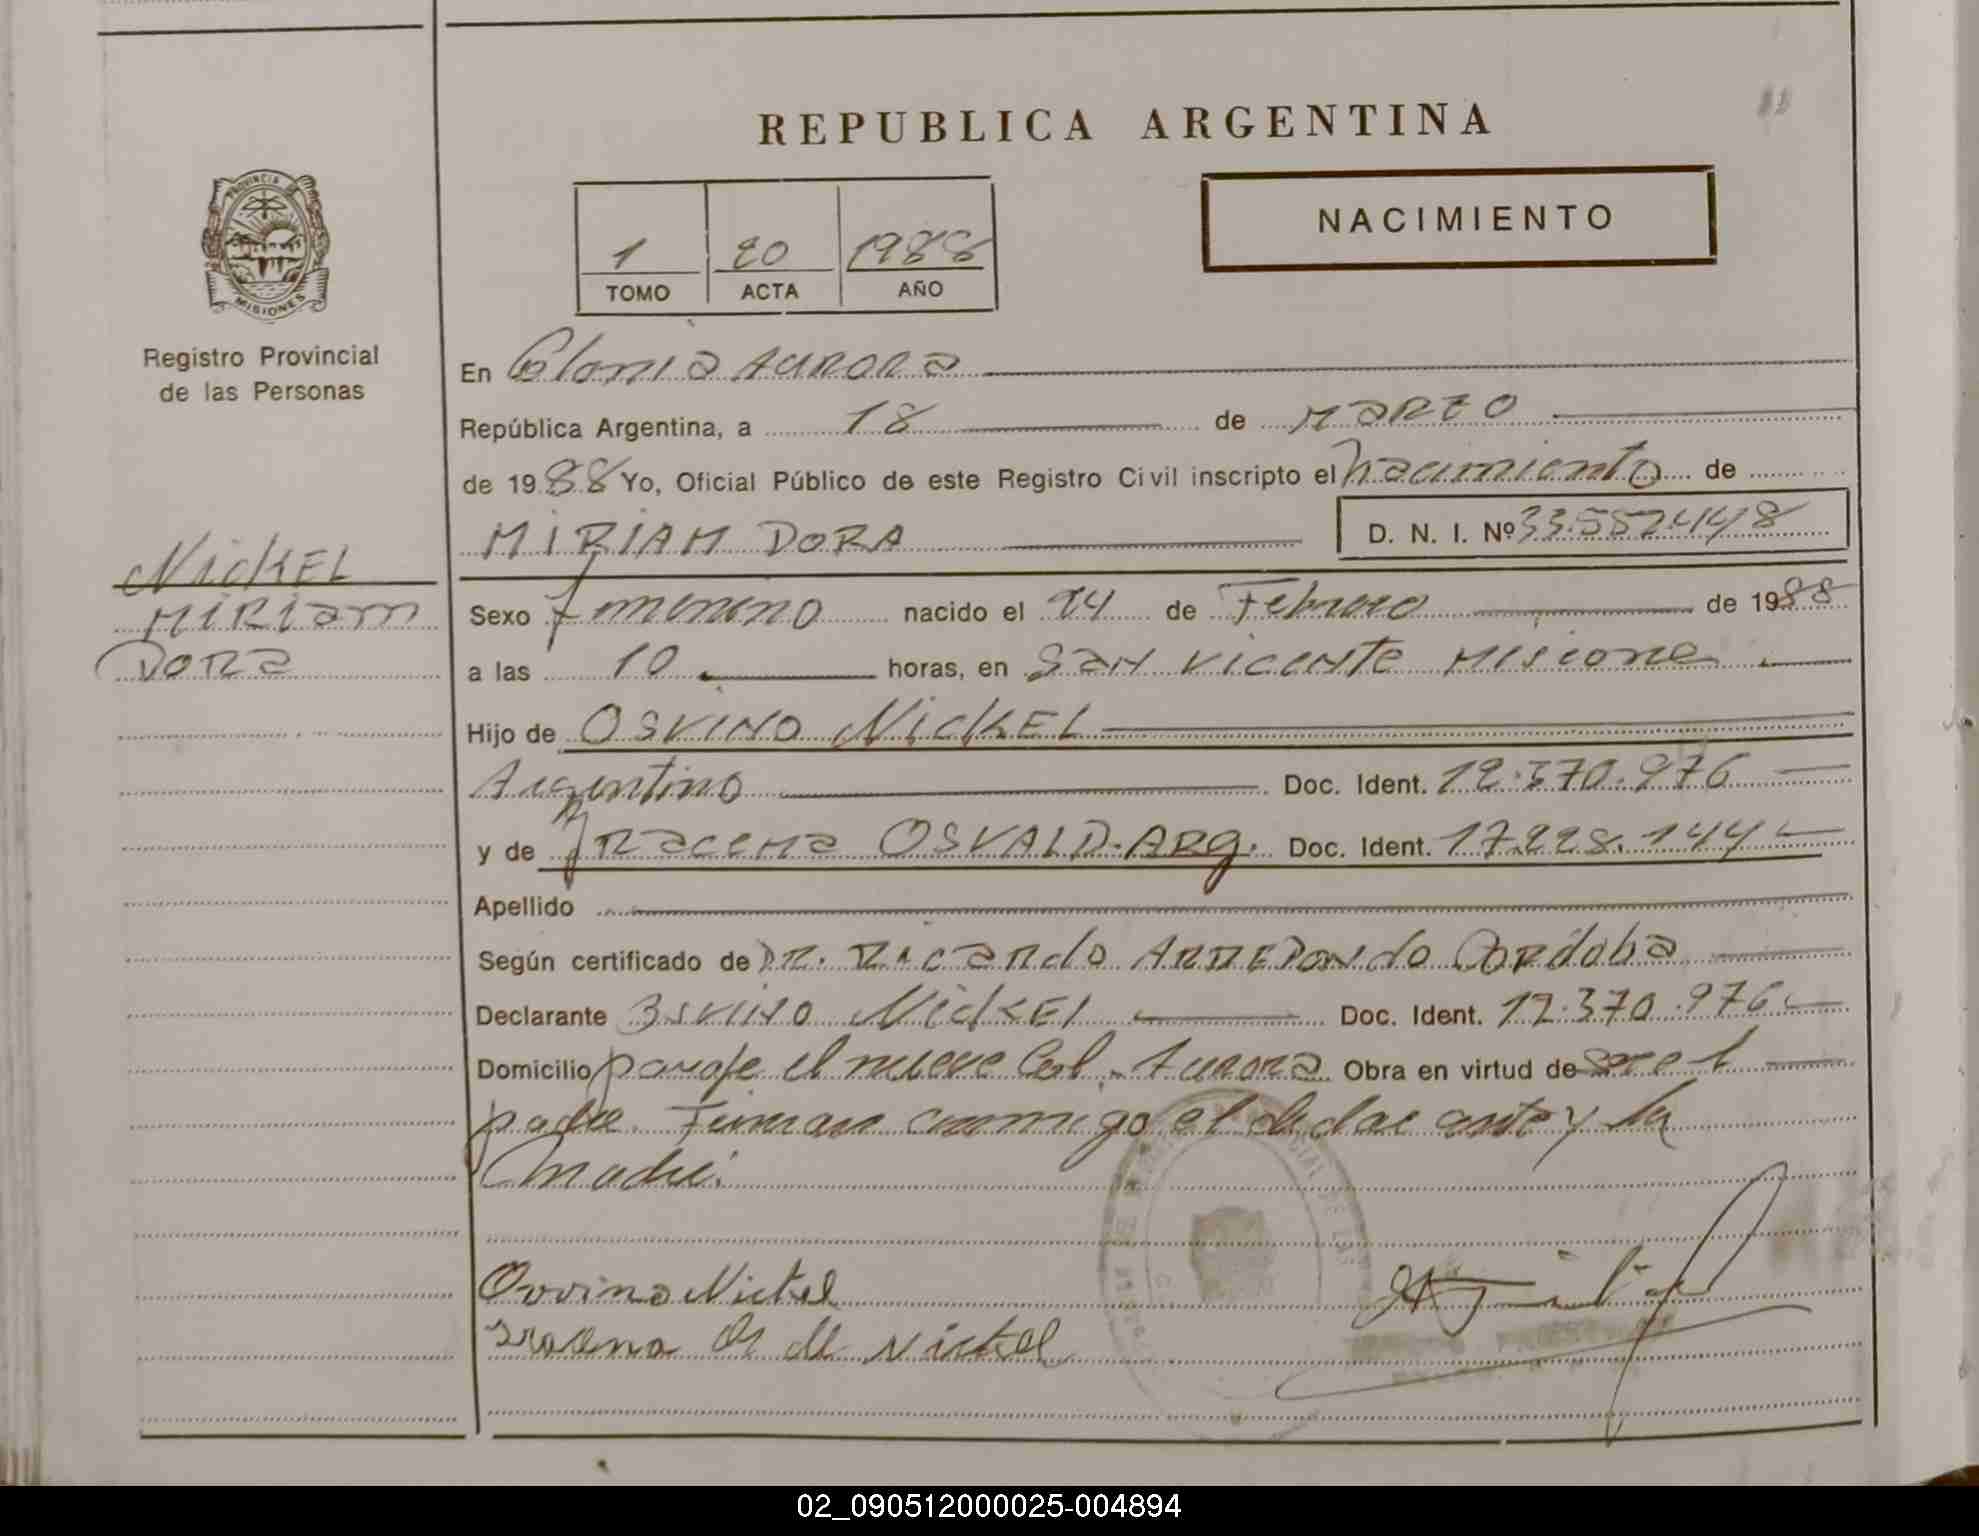 REPUBLICA ARGENTINA
NACIMIENTO
1 20 1988
TOMO ACTA AÑO
PROVINCIA DE
MISIONES
Registro Provincial
de las Personas
NICKEL
MIRIAM
DORA
En Colonia Aurora
República Argentina, a 18 de MARZO
de 1988 Yo, Oficial Público de este Registro Civil inscripto el Nacimiento de
MIRIAM DORA D. N. I. Nº 33.582.448
Sexo femenino nacido el 24 de Febrero de 1988
a las 10 horas, en SAN VICENTE Misiones
Hijo de OSVINO NICKEL
Argentino Doc. Ident. 12.370.976
y de IRACEMA OSVALD. ARG. Doc. Ident. 17.228.144
Apellido
Según certificado de DR. Ricardo ARREDONDO Cordoba
Declarante OSVINO NICKEL Doc. Ident. 12.370.976
Domicilio paraje el nueve Col. Aurora Obra en virtud de ser el
padre. Firman conmigo el declarante y la
madre.
Osvino Nickel
de Nickel
02_090512000025-004894